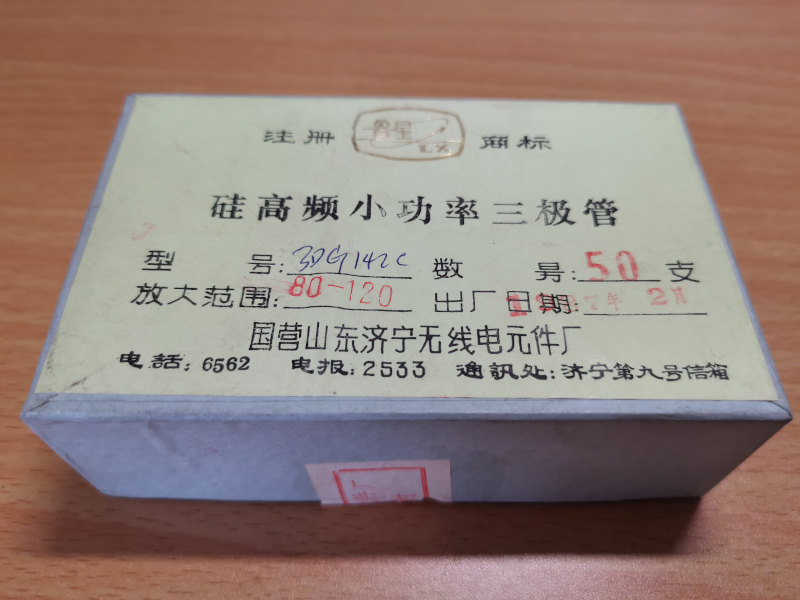 注册 鲁星 LX 商标
硅高频小功率三极管
型号: 3DG142C 数号: 50 支
放大范围: 80-120 出厂日期: 7年 2月
国营山东济宁无线电元件厂
电话: 6562 电报: 2533 通訊处: 济宁第九号信箱